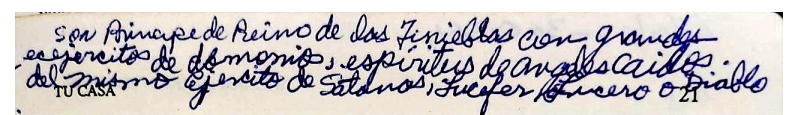 son Principe de Reino de las Tinieblas con grandes
ejercitos de demonios, espíritus de angeles caidos.
del mismo ejercito de Satanas, Lucero o Diablo
TU CASA 21